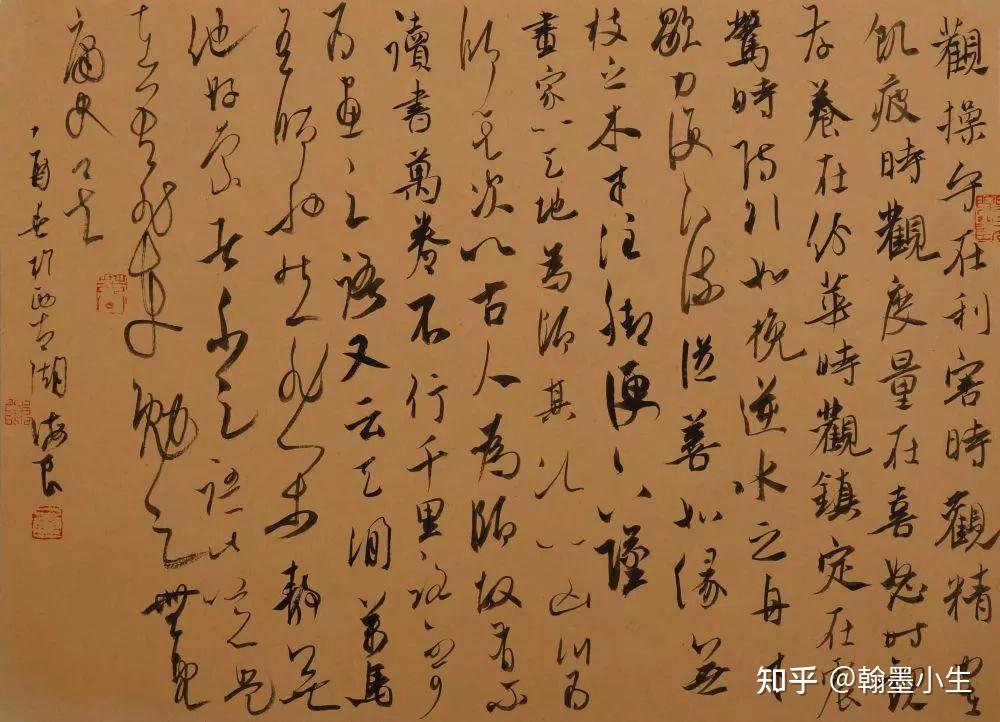 觀操守在利害時觀精力在
飢疲時觀度量在喜怒時觀
存養在紛華時觀鎮定在震
驚時防如挽逆水之舟才
歇力便下流從善如緣無
枝之木才住腳便下墜
畫家以天地為師其次以山川為
師其次以古人為師故有不
讀書萬卷不行千里路不可
為畫之語又云天閑萬馬
吾師也然非心靜無
他好縈者不足語此
勉之
丁酉春於西湖海良
知乎 @翰墨小生